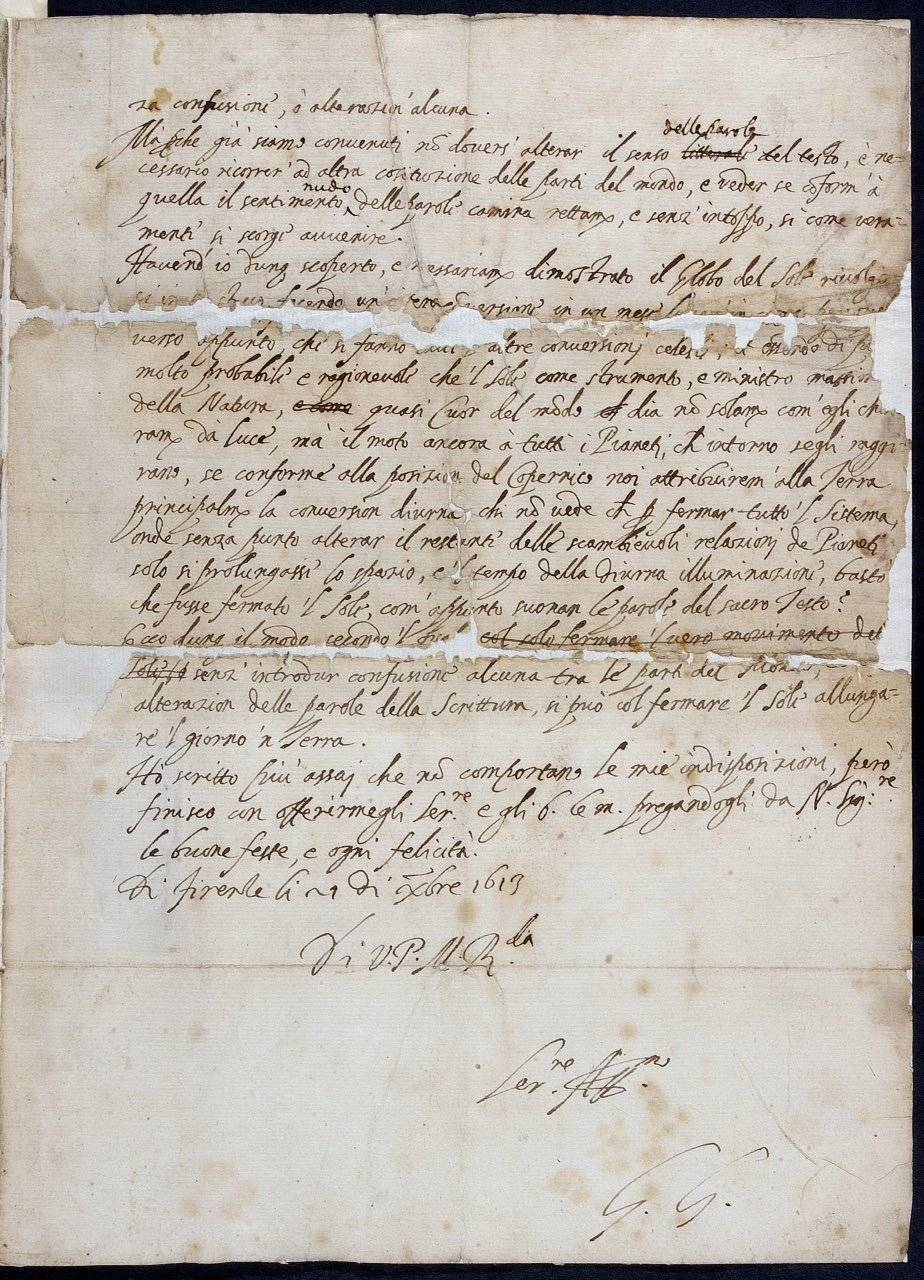 za confusione, ò alterazion' alcuna.
Mà perche già siamo convenuti nō dovers' alterar il senso litterale delle parole del testo, è ne-
cessario ricorrer' ad altra costituzione delle parti del mondo, e veder se cōform' à
quella il sentimento nudo delle parole camina rettamᵉ, e senz' intoppo, si come vera-
mente si scorge avvenire.
Havend' io dunq scoperto, e necessariamᵉ dimostrato il Globo del Sole rivolger
si in se stesso, facendo un' intera conversione in un mese
verso appunto, che si fanno altre conversionj celesti; essendo di più
molto probabile e ragionevole che 'l Sole come strumento, e ministro massimo
della Natura, e come quasi Cuor del mōdo dia nō solamᵉ com' egli chia
ramᵉ dà luce, mà il moto ancora à tutti i Pianeti, ch' intorno segli raggi
rano, se conforme alla posizion del Copernico noi attribuirem' alla Terra
principalmᵉ la conversion diurna, chi nō vede ch' p fermar tutto 'l Sistema,
onde senza punto alterar il restante delle scambievoli relazionj de Pianeti
solo si prolungasse lo spazio, e 'l tempo della diurna illuminazione, basto
che fusse fermato 'l Sole, com' appunto suonan le parole del sacro Testo?
Ecco dunq il modo secondo 'l col solo fermare 'l vero movimento del
Sole senz' introdur confusione alcuna tra le parti del mondo,
alterazion delle parole della Scrittura, si può col fermare 'l Sole allunga-
re 'l giorno 'n Terra.
Hò scritto più assaj che nō comportano le mie indisposizioni, però
finisco con offerirmegli Ser.ʳᵉ e gli b. le m. pregandogli da N. Sig.ʳᵉ
le buone feste, e ogni felicità.
Di Firenze li 21 di Xbre 1613
Di V. P. M. R.ᵈᵃ
Ser.ʳᵉ Aff.ᵐᵒ
G. G.